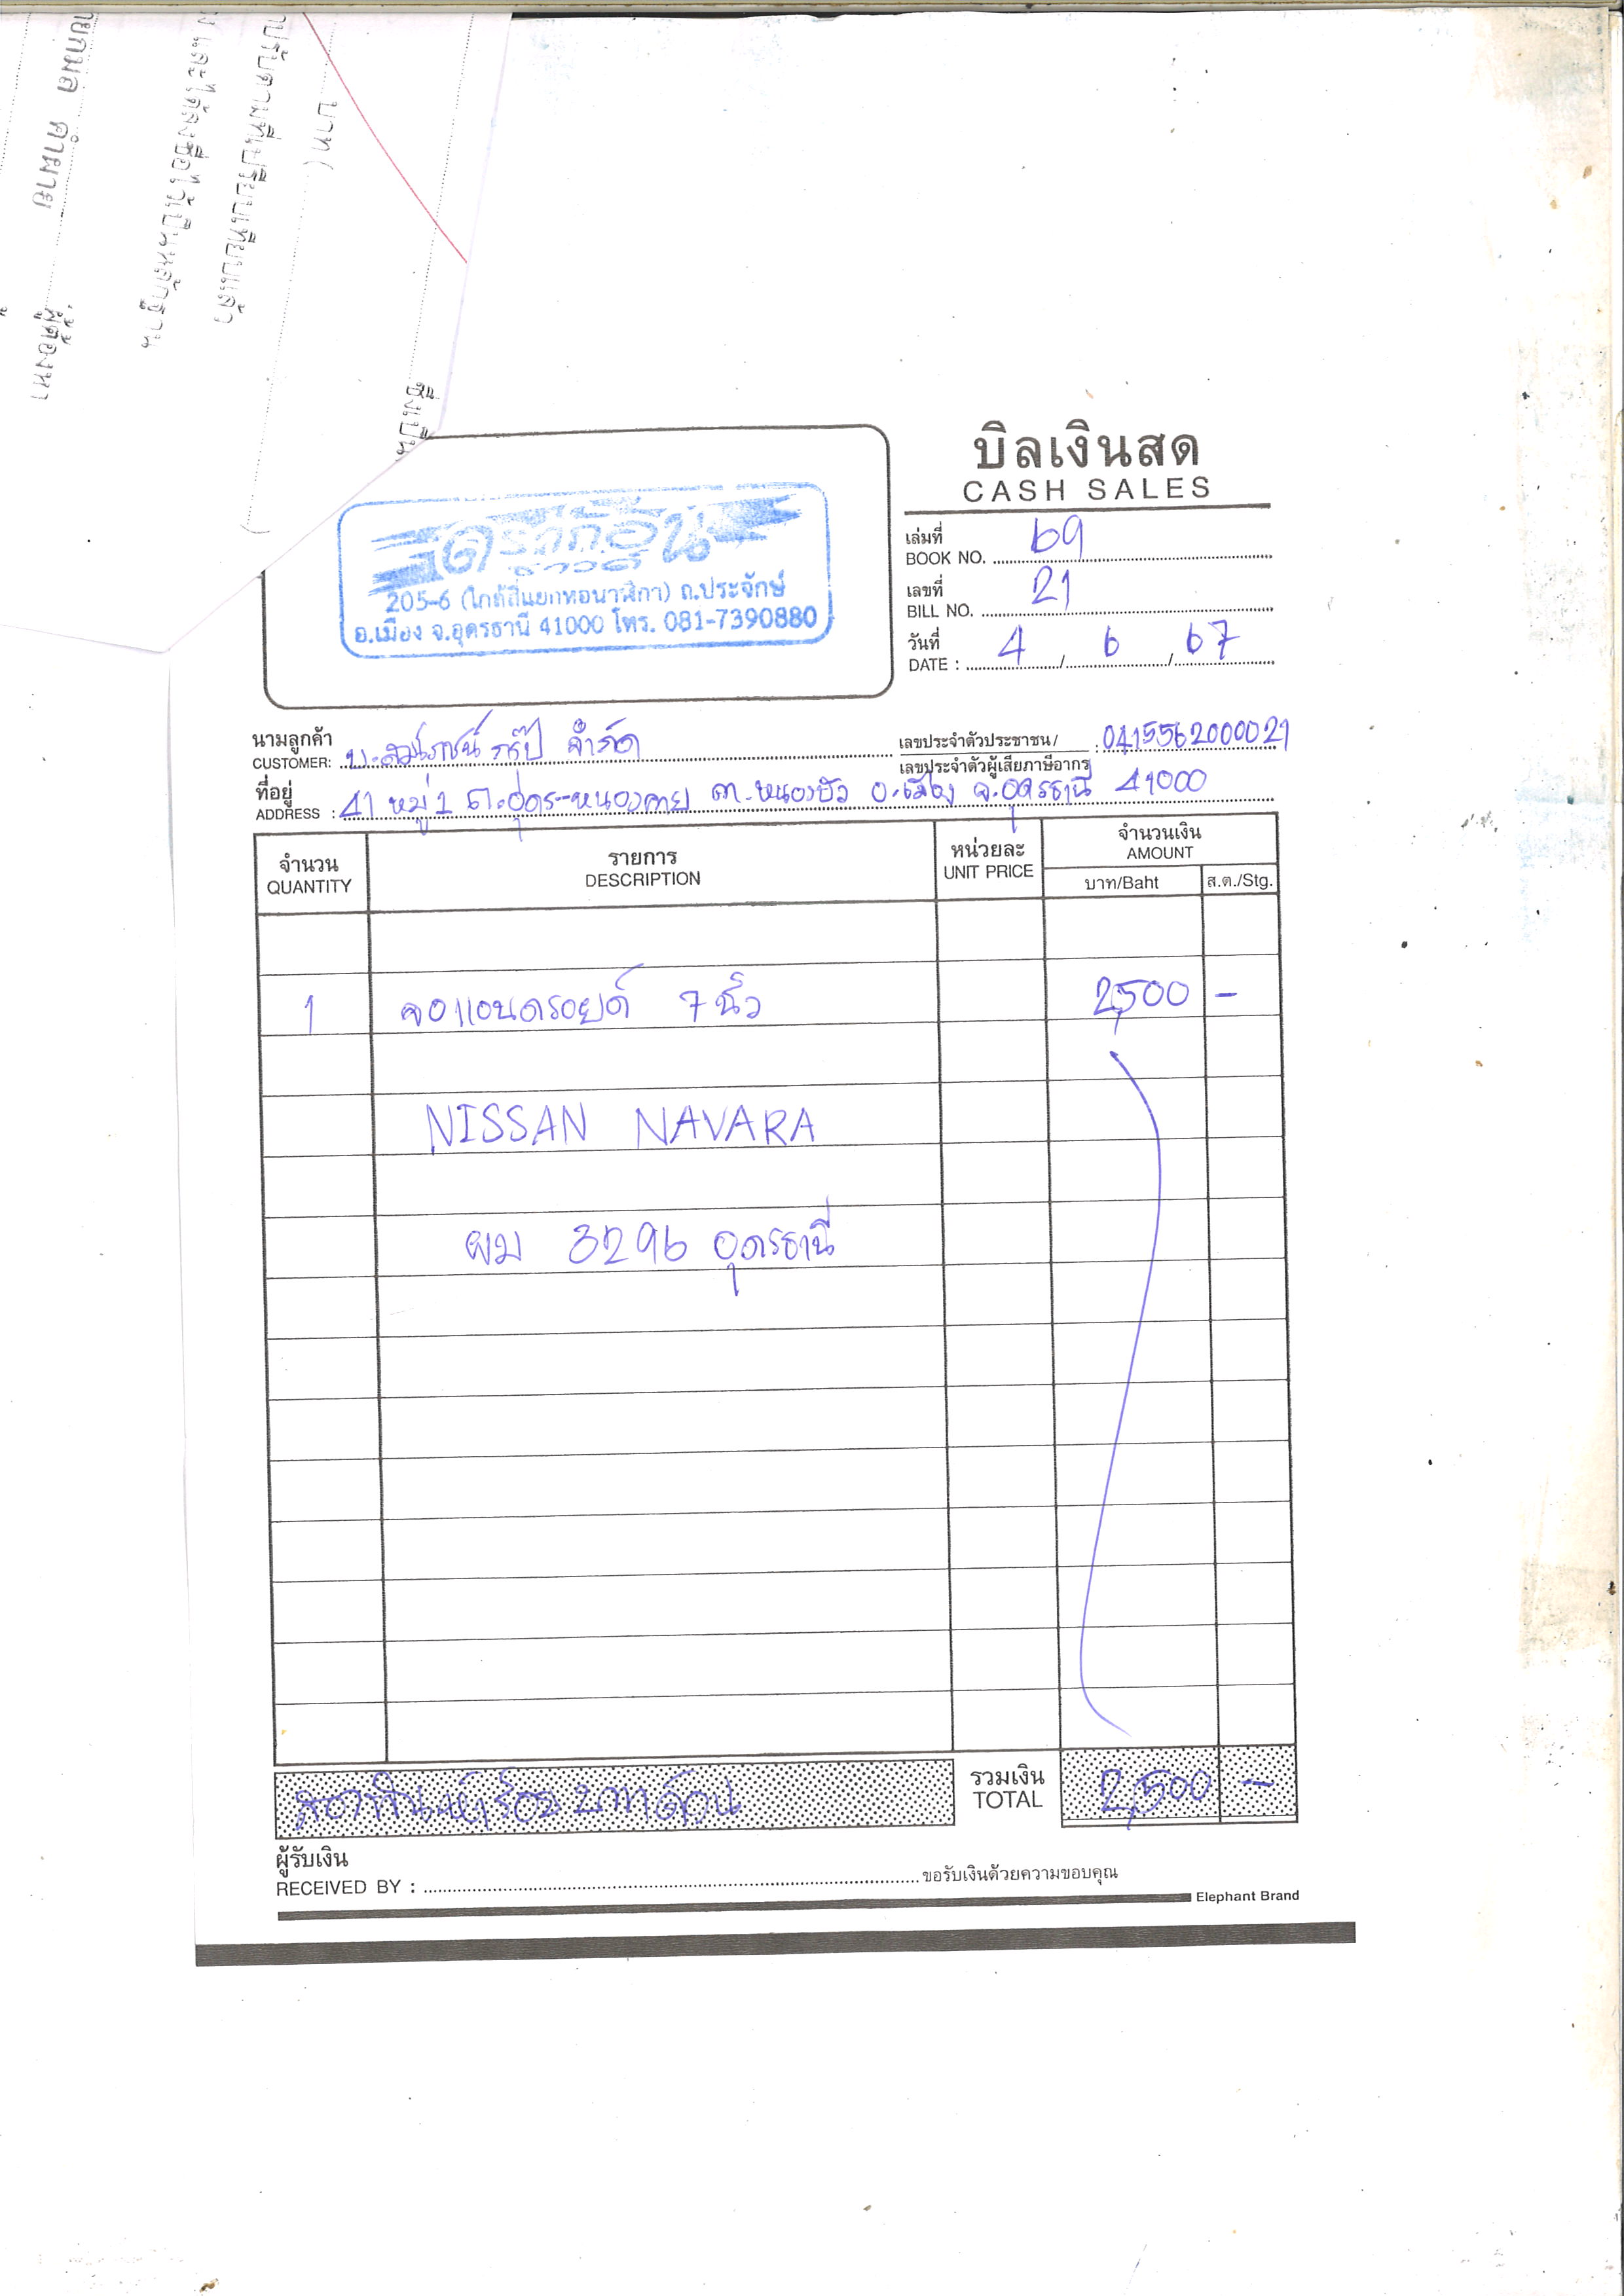 บาท (
ปรับตามที่เปรียบเทียบแล้ว
และได้ลงชื่อไว้เป็นหลักฐาน
ผู้ต้องหา
ซึ่งเป็น
บิลเงินสด
CASH SALES
ดราก้อน
ซาวด์
205-6 (ใกล้สี่แยกหอนาฬิกา) ถ.ประจักษ์
อ.เมือง จ.อุดรธานี 41000 โทร. 081-7390880
เล่มที่
BOOK NO. 69
เลขที่
BILL NO. 21
วันที่
DATE : 4 / 6 / 67
นามลูกค้า
CUSTOMER: กรุ๊ป จำกัด
เลขประจำตัวประชาชน/
เลขประจำตัวผู้เสียภาษีอากร : 0415562000021
ที่อยู่
ADDRESS : 41 หมู่ 1 ถ.อุดร-หนองคาย ต.หนองบัว อ.เมือง จ.อุดรธานี 41000
จำนวน รายการ หน่วยละ จำนวนเงิน
QUANTITY DESCRIPTION UNIT PRICE AMOUNT
บาท/Baht ส.ต./Stg.
1 จอแอนดรอยด์ 7 นิ้ว 2,500 -
NISSAN NAVARA
ผม 3296 อุดรธานี
สองพันห้าร้อยบาทถ้วน รวมเงิน TOTAL 2,500 -
ผู้รับเงิน
RECEIVED BY : ขอรับเงินด้วยความขอบคุณ
Elephant Brand